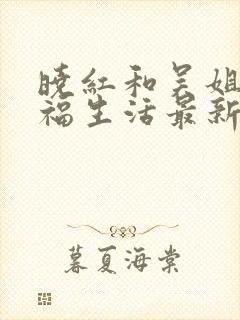 晓红和吴姐
福生活最新
暮夏海棠